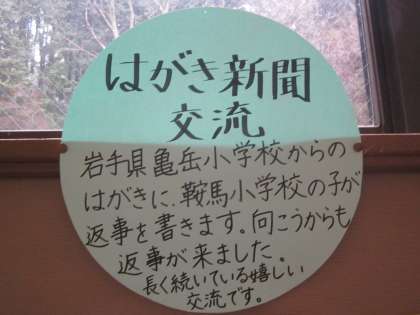 はがき新聞
交流
岩手県亀岳小学校からの
はがきに、鞍馬小学校の子が
返事を書きます。向こうからも
返事が来ました。
長く続いている嬉しい
交流です。